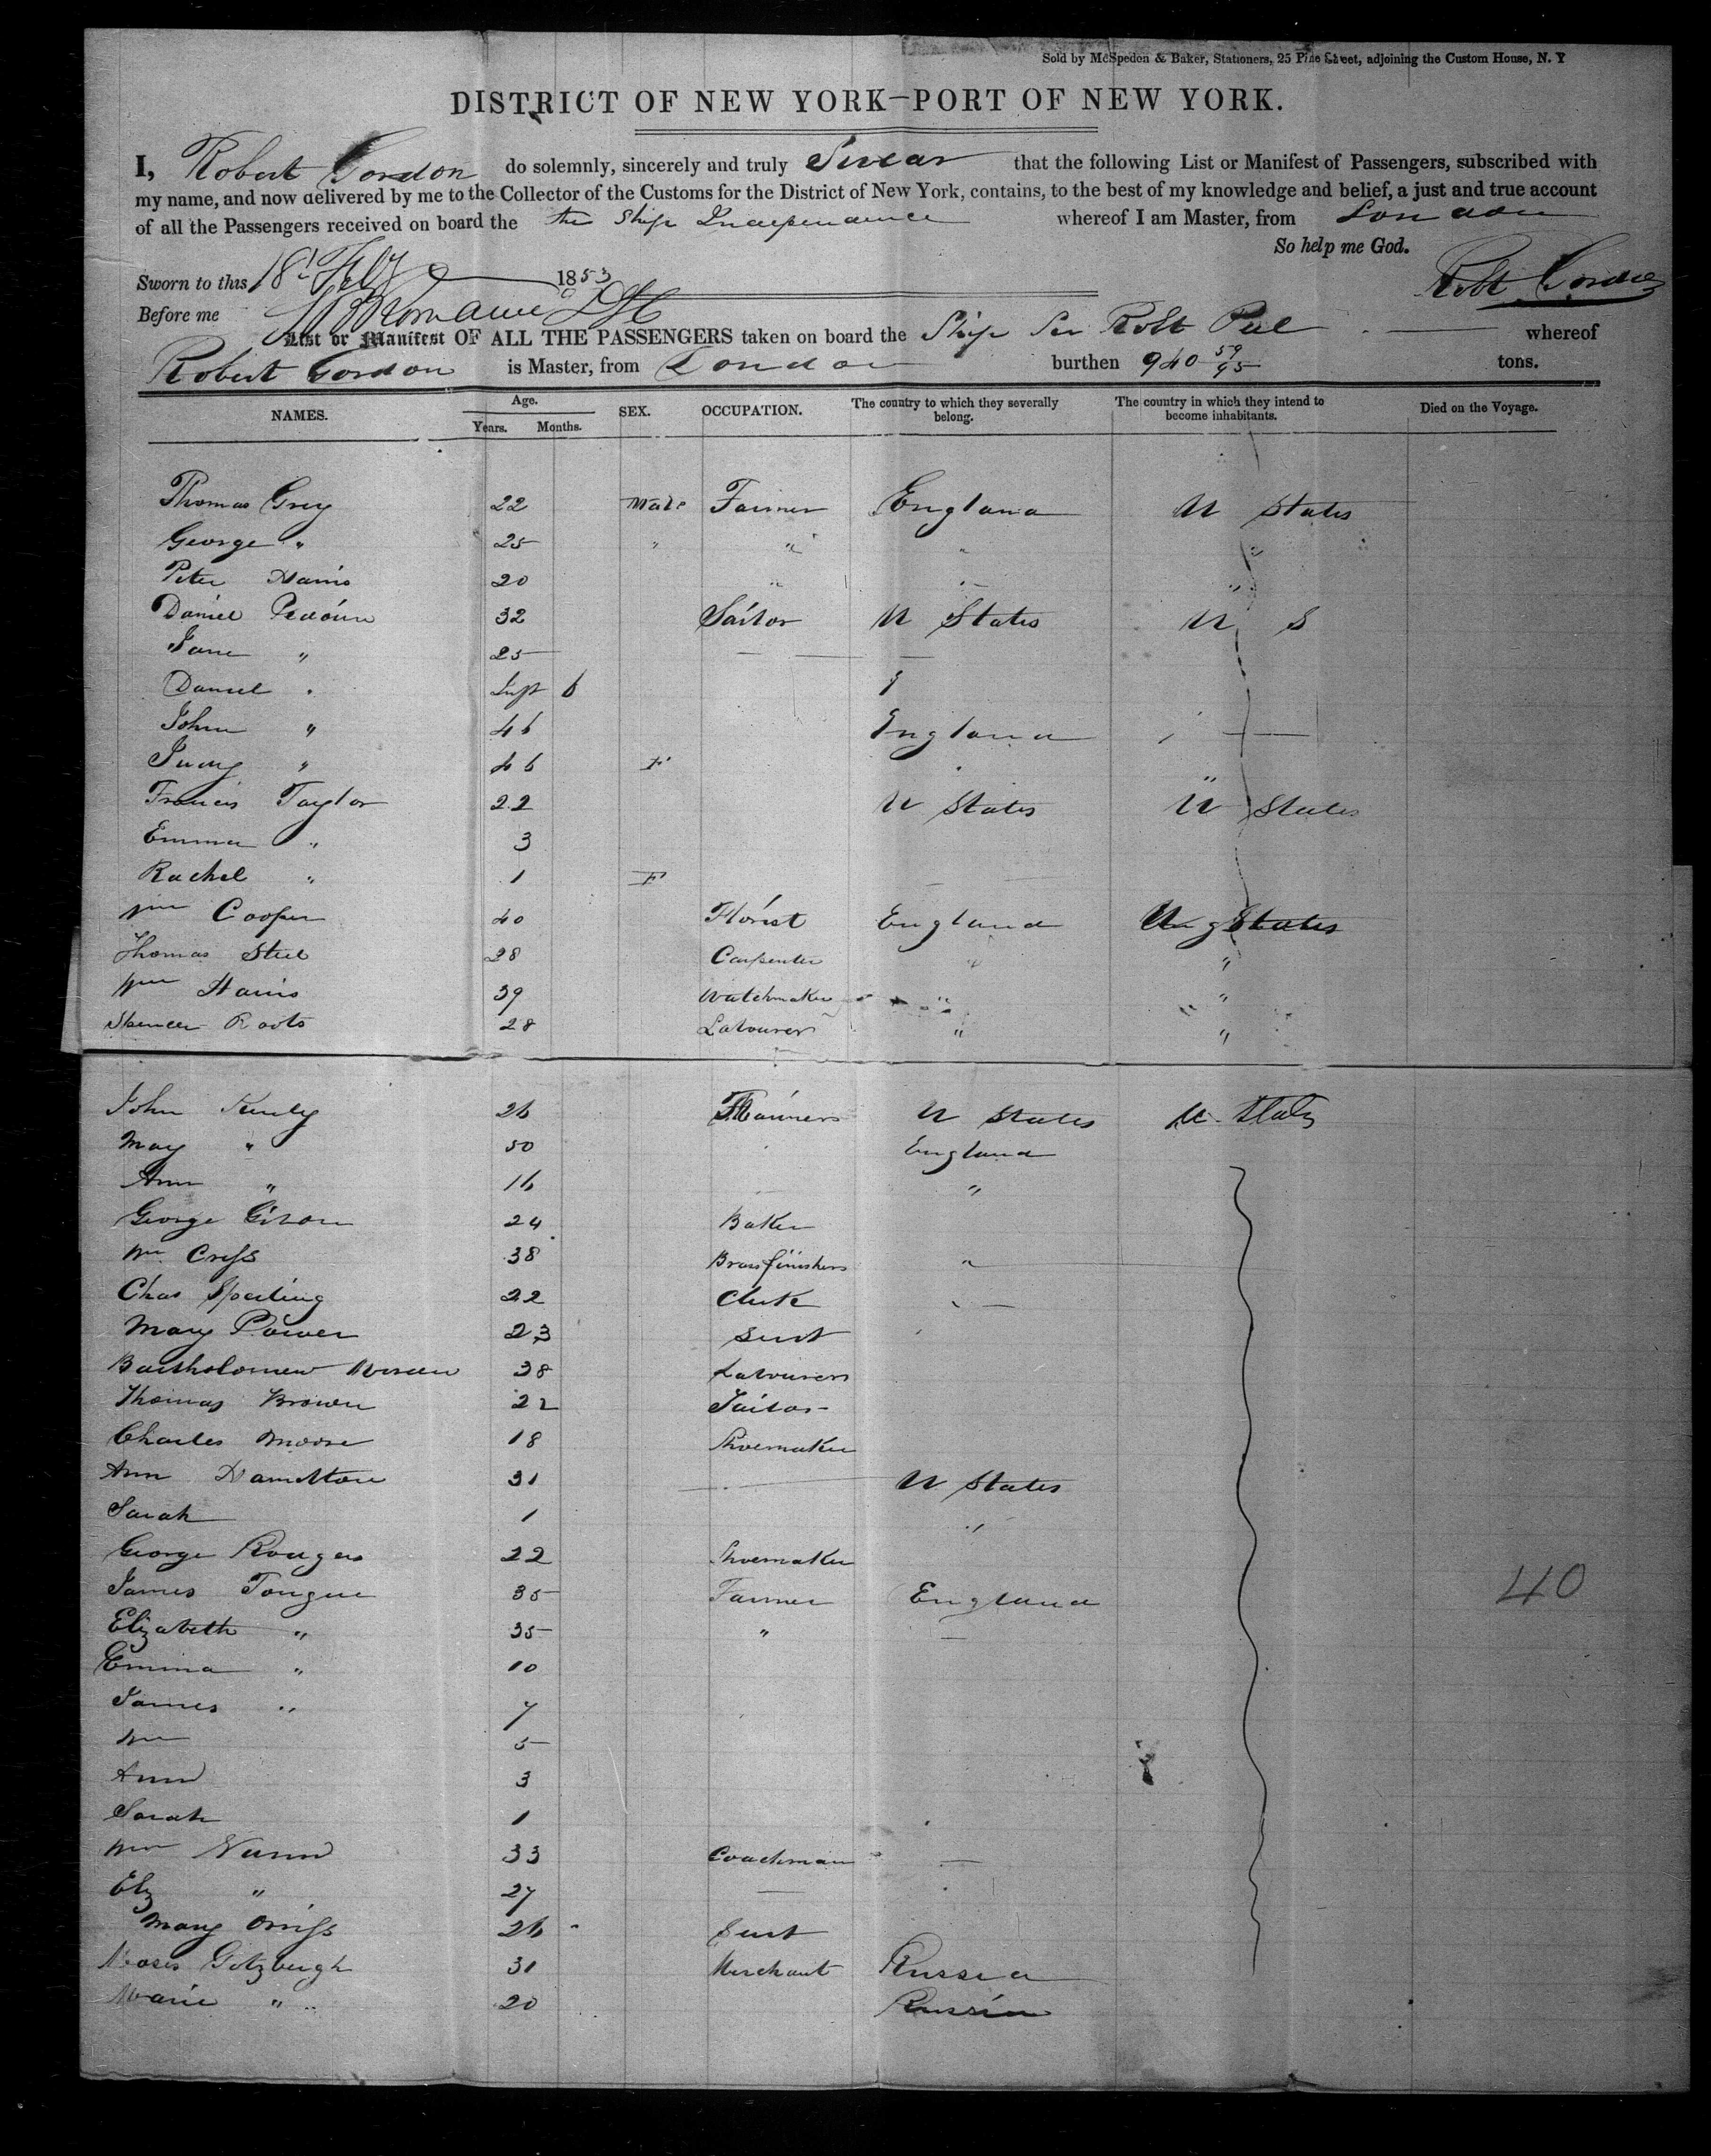 Sold by McSpedon & Baker, Stationers, 25 Pine Street, adjoining the Custom House, N. Y
DISTRICT OF NEW YORK—PORT OF NEW YORK.
I, Robert Gordon do solemnly, sincerely and truly Swear that the following List or Manifest of Passengers, subscribed with
my name, and now delivered by me to the Collector of the Customs for the District of New York, contains, to the best of my knowledge and belief, a just and true account
of all the Passengers received on board the the Ship Independence whereof I am Master, from London
So help me God.
Sworn to this 18t Feby 1853
Robt Gordon
Before me
List or Manifest OF ALL THE PASSENGERS taken on board the Ship Sir Robt Peel whereof
Robert Gordon is Master, from London burthen 940 59/95 tons.
NAMES. Age. Years. Months. SEX. OCCUPATION. The country to which they severally belong. The country in which they intend to become inhabitants. Died on the Voyage.
Thomas Grey 22 Male Farmer England U States
George " 25 " " " "
Peter Harris 20 " " "
Daniel 32 U States U S
Jane " 25
Daniel " 6
John " 46 England
" 46 F "
Francis Taylor 22 U States U States
Emma " 3
Rachel " 1 F
Wm Cooper 40 Florist England U States
Thomas Steel 28 Carpenter " "
Wm Harris 39 Watchmaker " "
Spencer Roots 28 Labourer " "
John 26 Farmers U States U. States
May " 50 England
Ann " 16 "
George 24 Baker
Wm Criss 38 Brassfinishers "
Chas Sperling 22 Clerk "
Mary Power 23 Servt
Bartholomew 38 Labourers
Thomas Brown 22 Tailor
Charles Moore 18 Shoemaker
Ann Hamilton 31 U States
Sarah 1 "
George Rodgers 22 Shoemaker
James Tongue 35 Farmer England
40
Elizabeth " 35 "
Emma " 10
James " 7
Wm 5
Ann 3
Sarah 1
Wm Nunn 33 Coachman
Eliz " 27
Mary Orriss 26 Servt
Moses Gitzbergh 31 Merchant Russia
Marie " 20 Russia